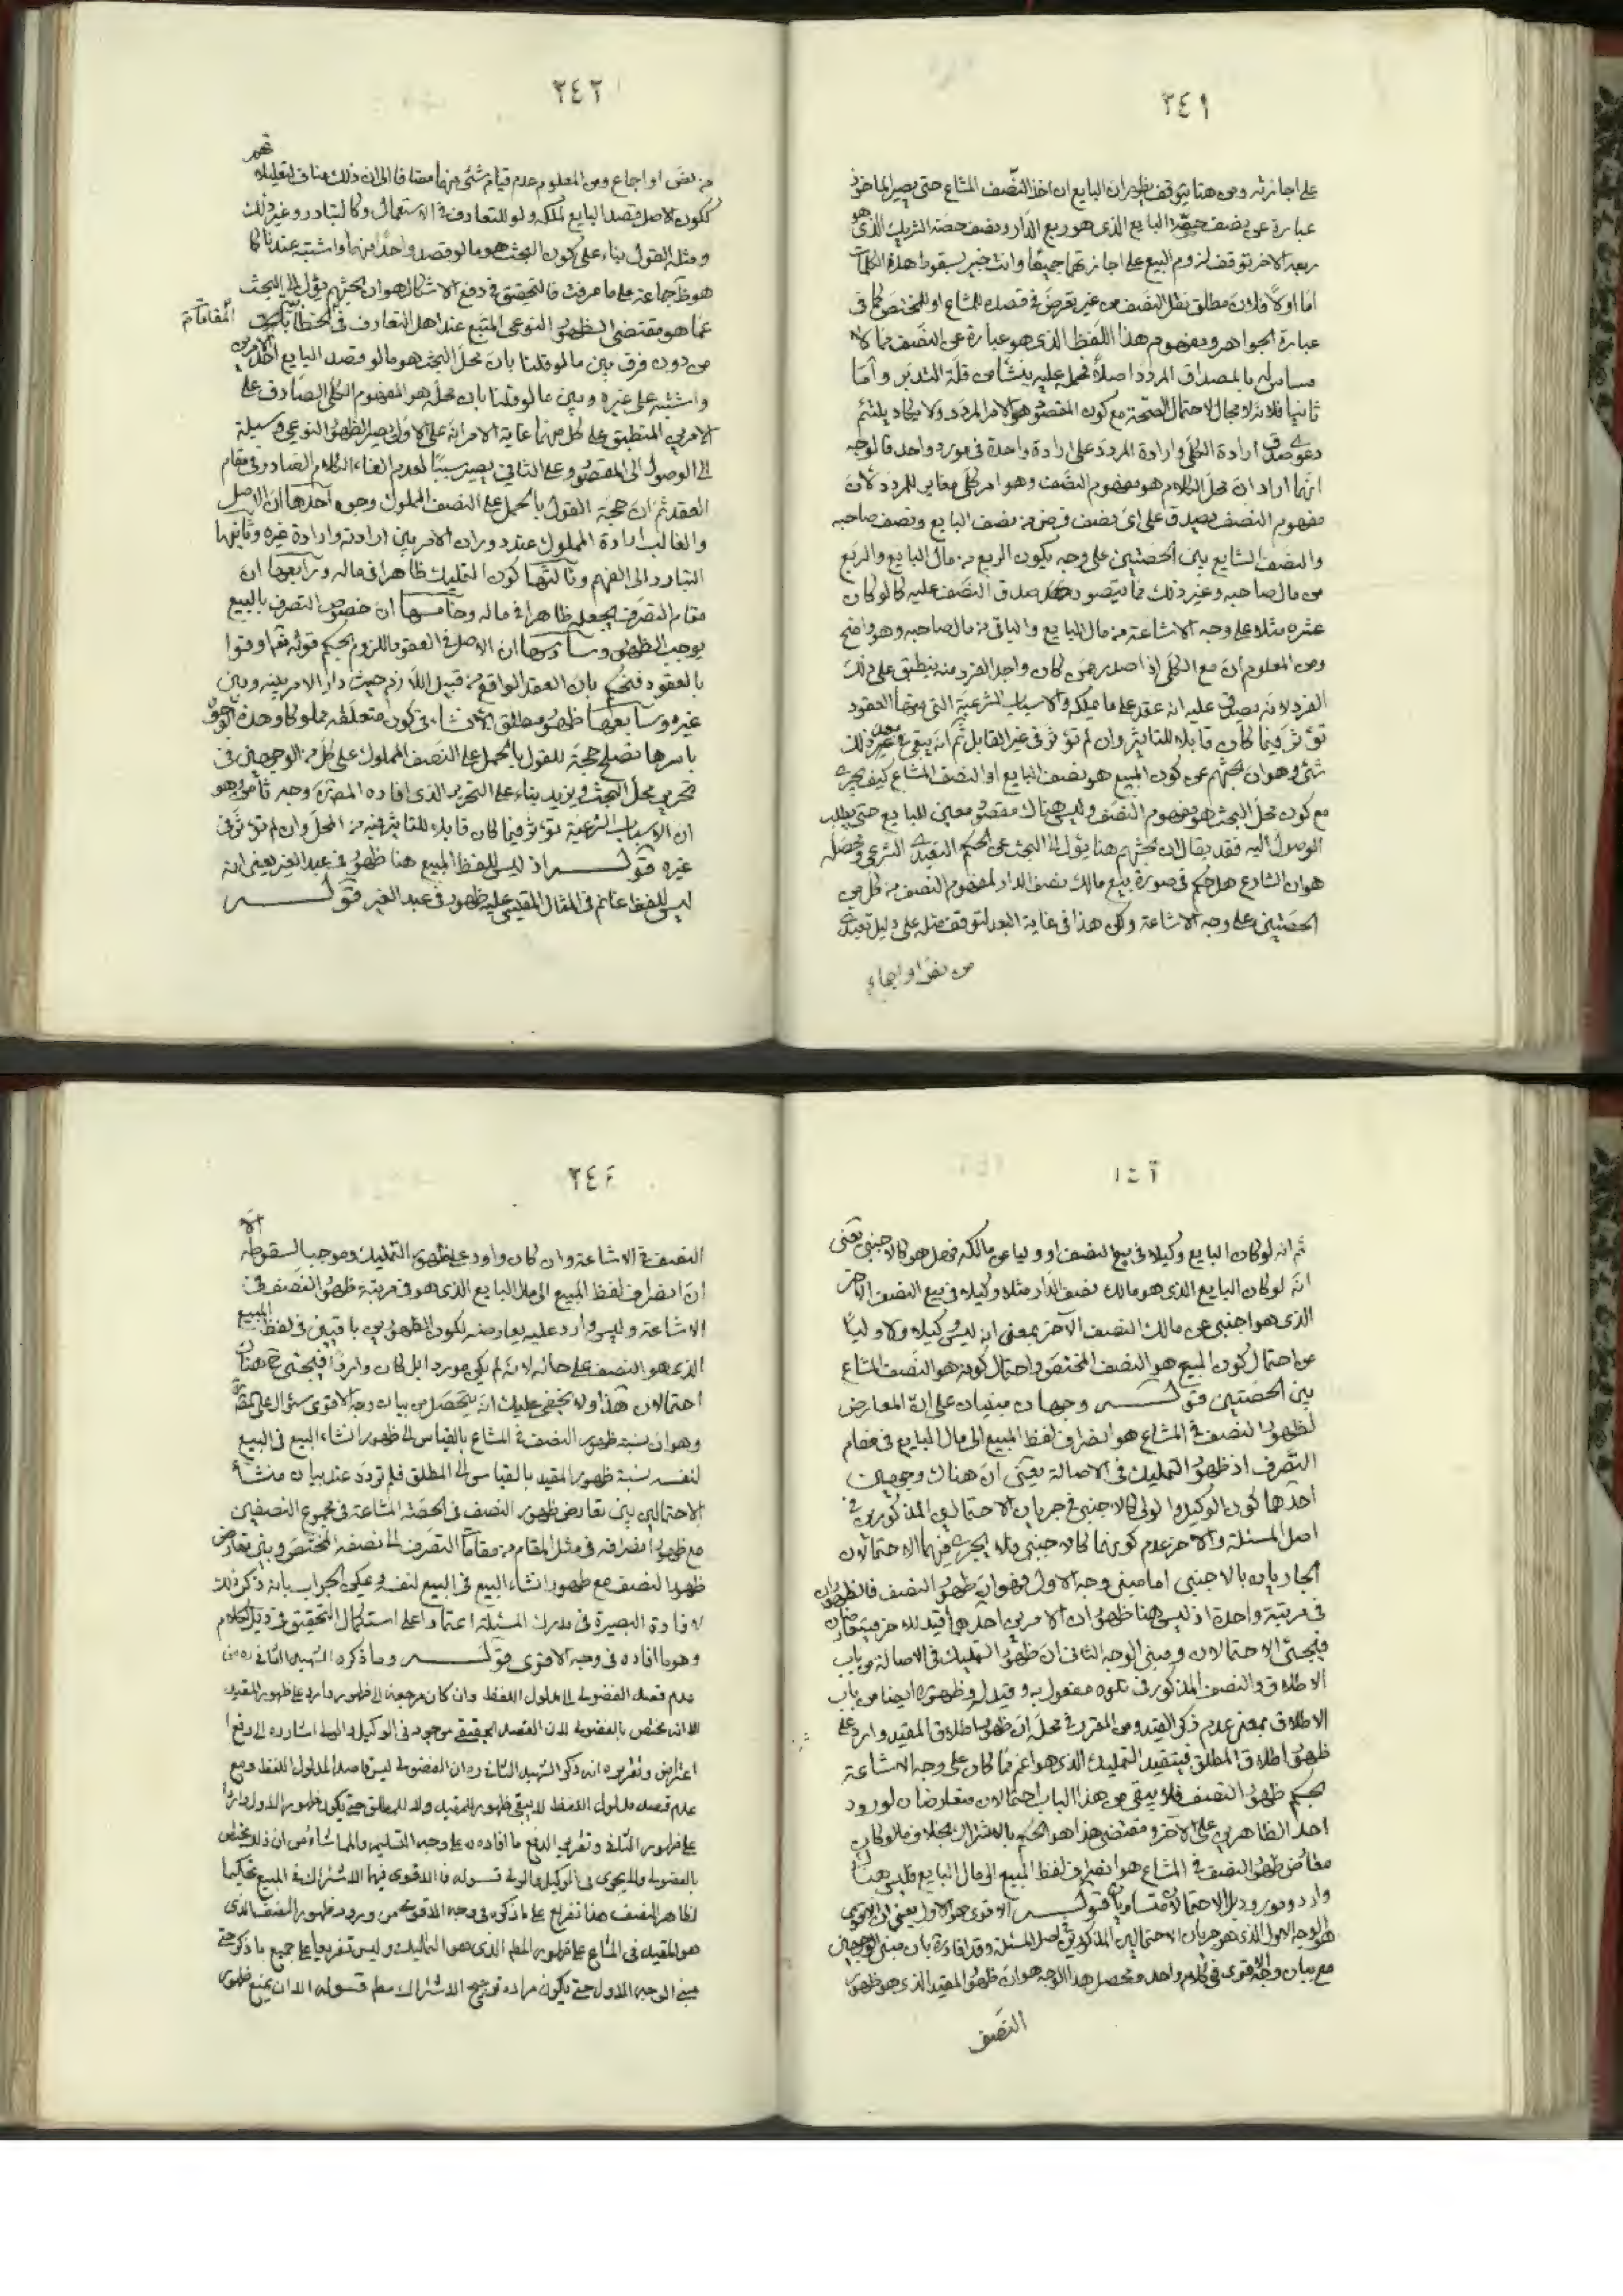 ٣٤١
على اجازته ومن هنا يتوقف بظهر ان البايع ان اخذ النصف المشاع حتى يصير الماخوذ
عبارة عن نصف حصة البايع الذى هو ربع الدار ونصف حصة الشريك الذى هو
ربعه الاخر توقف لزوم البيع على اجازتهما جميعا وانت خبير بسقوط هذه الكلمات
اما اولا فلان مطلق نقل النصف من غير تعرض فى قصده للمشاع او للمختص كما فى
عبارة الجواهر ومفهوم هذا اللفظ الذى هو عبارة عن النصف مما لا
مساس له بالمصداق المردد اصلا فحمله عليه ينشأ من قلة التدبر واما
ثانيا فلانه لا مجال لاحتمال الصحة مع كون المقصود هو الامر المردد ولا يكاد يلتئم
دعوى صدق ارادة الكلى وارادة المردد على ارادة واحدة فى مورد واحد فالوجه
انما اراد ان محل الكلام هو مفهوم النصف وهو امر كلى مغاير للمردد لان
مفهوم النصف يصدق على اى نصف فرض من نصف البايع ونصف صاحبه
والنصف الشايع بين الحصتين على وجه يكون الربع من مال البايع والربع
من مال صاحبه وغير ذلك مما يتصور صدق النصف عليه كما لو كان
عشره مثلا على وجه الاشاعة من مال البايع والباقى من مال صاحبه وهو واضح
ومن المعلوم ان مع الكلى اذا صدر ممن كان واجد الفرد منه ينطبق على ذلك
الفرد لانه يصدق عليه انه عقد على ما يملكه والاسباب الشرعية التى منها العقود
تؤثر فيما كان قابلا للتاثير وان لم تؤثر فى غير القابل ثم انه يبقى فى غير ذلك
شئ وهو ان بحثهم عن كون المبيع هو نصف البايع او النصف المشاع كيف يجرى
مع كون محل البحث هو مفهوم النصف وليس هناك مقصود معين للبايع حتى يطلب
الوصول اليه فقد يقال ان بحثهم هنا يؤل الى البحث عن الحكم التعبدى الشرعى ومحصله
هو ان الشارع هل حكم فى صورة بيع مالك نصف الدار لمفهوم النصف من كل من
الحصتين على وجه الاشاعة ولكن هذا فى غاية البعد لتوقف مثله على دليل تعبدى
من نص او اجماع
٣٤٢
من نص او اجماع ومن المعلوم عدم قيام شئ منهما مضافا الى ان ذلك مناف لتعليلهم
ككون الاصل قصد البايع لملكه ولو للتعارف فى الاستعمال وكالتبادر وغير ذلك
ومثله القول بناء على كون البحث هو ما لو قصد واحدا منهما واشتبه عندنا كما
هو ظ جماعة على ما عرفت فالتحقيق فى دفع الاشكال هو ان بحثهم يؤل الى البحث
عما هو مقتضى الظهور النوعى المتبع عند اهل التعارف فى الخطابات المقامات
من دون فرق بين ما لو قلنا بان محل البحث هو ما لو قصد البايع احد الامرين
واشتبه على غيره وبين ما لو قلنا بان محله هو المفهوم الكلى الصادق على
الامرين المنطبق على كل منهما غاية الامر انه على الاول يصير الظهور النوعى وسيلة
الى الوصول الى المقصود وعلى الثانى يصير سببا لعدم الغاء الكلام الصادر فى مقام
العقد ثم ان حجة القول بالحمل على النصف المملوك وجوه احدها ان الاصل
والغالب ارادة المملوك عند دوران الامر بين ارادته وارادة غيره وثانيها
التبادر الى الفهم وثالثها كون التمليك ظاهرا فى ماله ورابعها ان
مقام التصرف يجعله ظاهرا فى ماله وخامسها ان خصوص التصرف بالبيع
يوجب الظهور وسادسها ان الاصل فى العقود اللزوم بحكم قوله تعالى اوفوا
بالعقود فيحكم بان العقد الواقع من قبيل اللازم حيث دار الامر بينه وبين
غيره وسابعها ظهور مطلق الانشاء فى كون متعلقه مملوكا وهذه الوجوه
باسرها تصلح حجة للقول بالحمل على النصف المملوك على كل من الوجهين فى
تحرير محل البحث ويزيد بناء على التحرير الذى افاده المصنف وجه ثامن وهو
ان الاسباب الشرعية تؤثر فيما كان قابلا للتاثير فيه من المحل وان لم تؤثر فى
غيره قوله اذ ليس للفظ المبيع هنا ظهور فى عبد الغير يعنى انه
ليس للفظ غانم فى المثال المقيس عليه ظهور فى عبد الغير قوله
ثم انه لو كان البايع وكيلا فى بيع النصف او وليا عن مالكه فهل هو كالاجنبى يعنى
انه لو كان البايع الذى هو مالك نصف الدار مثلا وكيلا فى بيع النصف الاخر
الذى هو اجنبى عن مالك النصف الآخر بمعنى انه ليس وكيلا ولا وليا
عن احتمال كون المبيع هو النصف المختص واحتمال كونه هو النصف المشاع
بين الحصتين قوله وجهان مبنيان على ان المعارض
لظهور النصف فى المشاع هو انصراف لفظ المبيع الى مال البايع فى مقام
التصرف او ظهور التمليك فى الاصالة يعنى ان هناك وجهين
احدهما كون الوكيل والولى كالاجنبى فى جريان الاحتمالين المذكورين فى
اصل المسئلة والاخر عدم كونهما كالاجنبى فلا يجرى فيهما الاحتمالان
الجاريان بالاجنبى اما مبنى وجه الاول فهو ان ظهور النصف فالظهوران
فى مرتبة واحدة اذ ليس هنا ظهور ان الامرين احدهما قيد للاخر فيتعارضان
فيجئ الاحتمالان ومبنى الوجه الثانى ان ظهور التمليك فى الاصالة من باب
الاطلاق والنصف المذكور فى تلوه مفعول به وقيد له وظهوره ايضا من باب
الاطلاق بمعنى عدم ذكر القيد ومن المقرر فى محله ان ظهور اطلاق المقيد وارد على
ظهور اطلاق المطلق فيتقيد التمليك الذى هو اعم مما كان على وجه الاشاعة
بحكم ظهور النصف فلا يبقى من هذا الباب احتمالان متعارضان لورود
احد الظاهرين على الآخر ومقتضى هذا هو الحكم بالاشتراك بخلاف ما لو كان
معارض ظهور النصف فى المشاع هو انصراف لفظ المبيع الى مال البايع فليس هنا
وارد ومورود بل الاحتمالان متساويان قوله الاقوى هو الاول يعنى ان الاقوى
هو الوجه الاول الذى هو جريان الاحتمالين المذكورين فى اصل المسئلة وقد افاده بان مبنى الوجهين
مع بيان وجه الاقوى فى كلام واحد ومحصل هذا الوجه هو ان ظهور المقيد الذى هو ظهور
النصف
٣٤٤
النصف فى الاشاعة وان كان واردا على ظهور التمليك وموجبا لسقوطه الا
ان انصراف لفظ المبيع الى مال البايع الذى هو فى مرتبة ظهور النصف فى
الاشاعة وليس واردا عليه يعارضه لكون الظهورين باقيين فى لفظ المبيع
الذى هو النصف على حاله لانه لم يكن موردا بل كان واردا فيجئ ح هنا
احتمالان هذا ولا يخفى عليك انه يتحصل من بيان وجه الاقوى سؤال على المصنف
وهو ان نسبة ظهور النصف فى المشاع بالقياس الى ظهور انشاء البيع فى البيع
لنفسه نسبة ظهور المقيد بالقياس الى المطلق فلم تردد عند بيان منشأ
الاحتمالين بين تعارض ظهور النصف فى الحصة المشاعة فى مجموع النصفين
مع ظهور انصرافه فى مثل المقام من مقامات التصرف الى نصفه المختص وبين تعارض
ظهور النصف مع ظهور انشاء البيع فى البيع لنفسه ويمكن الجواب بانه ذكر ذلك
لافادة البصيرة فى مدرك المسئلة اعتمادا على استكمال التحقيق فى ذيل الكلام
وهو ما افاده فى وجه الاقوى قوله وما ذكره الشهيد الثانى ره من
عدم قصد الفضولى الى مدلول اللفظ وان كان مرجعه الى ظهور وارد على ظهور المقيد
الا انه مختص بالفضولى لان القصد الحقيقى موجود فى الوكيل والولى اشارة الى دفع
اعتراض وتقريره انه ذكر الشهيد الثانى ره ان الفضولى ليس قاصدا لمدلول اللفظ ومع
عدم قصد مدلول اللفظ لا يبقى ظهور للمقيد ولا للمطلق حتى يكون ظهور الاول واردا
على ظهور الثانى وتقرير الدفع ما افاده ره على وجه التسليم والمماشاة من ان ذلك مختص
بالفضولى ولا يجرى فى الوكيل والولى قوله فالاقوى فيهما الاشتراك فى المبيع تحكيما
لظاهر النصف هذا تفريع على ما ذكره فى وجه الاقوى من ورود ظهور النصف الذى
هو المقيد فى المشاع على ظهور المطلق الذى هو التمليك وليس تفريعا على جميع ما ذكره حتى
مبنى الوجه الاول حتى يكون مراده ترجيح الاشتراك مطلقا قوله الا ان يمنع ظهور